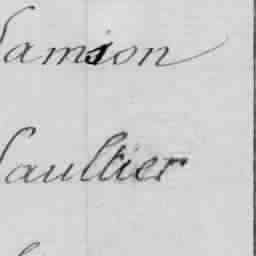 Samson
Gaultier